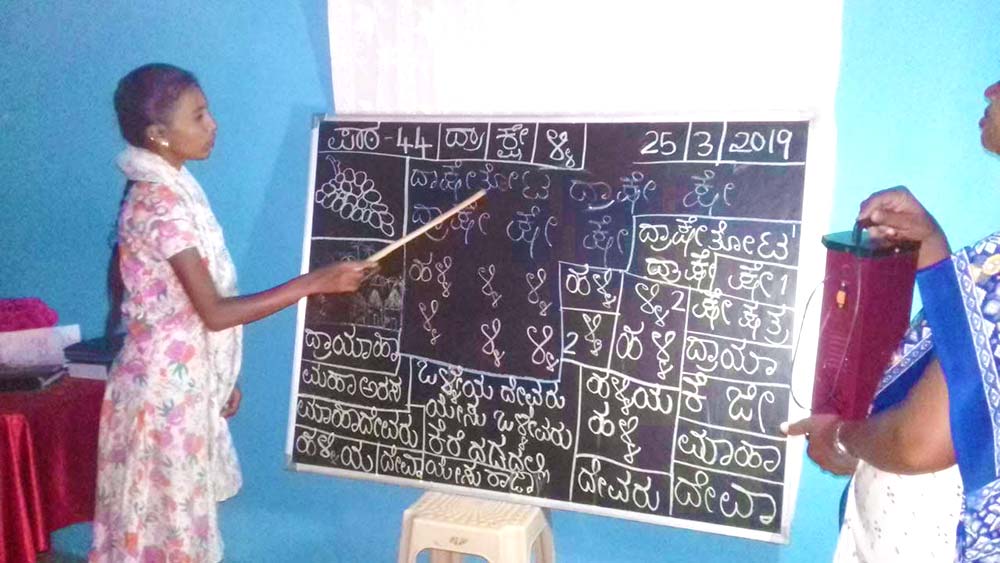 ಪಾಠ-44 ದ್ರಾ ಕ್ಷೇ ಳ್ಳಿ 25 3 2019
ದ್ರಾಕ್ಷೇತೋಟ ದ್ರಾಕ್ಷೇ ಕ್ಷೇ
ದ್ರಾಕ್ಷೇ ಕ್ಷೇ ಕ್ಷೇ ದ್ರಾಕ್ಷೇತೋಟ 1
ದ್ರಾಕ್ಷೇ ಕ್ಷೇ 1
ಹಳ್ಳಿ ಳ್ಳಿ ಳ್ಳಿ ಹಳ್ಳಿ ಳ್ಳಿ 2 ಕ್ಷೇತ್ರ
ಳ್ಳಿ ಳ್ಳಿ ಳ್ಳಿ 2 ಳ್ಳಿ ಹಳ್ಳಿ ದ್ರಾಯಾ
ದ್ರಾಯಾಹಾ
ಮಹಾ ಅರಸ ಒಳ್ಳೆಯ ದೇವರು ಹಳ್ಳಿಯ ಕೆ ಜೇ
ಮಾಹಾದೇವರು ಯೇಸು ಒಳ್ಳೇವರು ಹಳ್ಳಿ ಮಾಹಾ
ಹಳ್ಳಿಯ ದೇವಾ ಯೇಸು ರಾಜಾ ದೇವರು ದೇವಾ